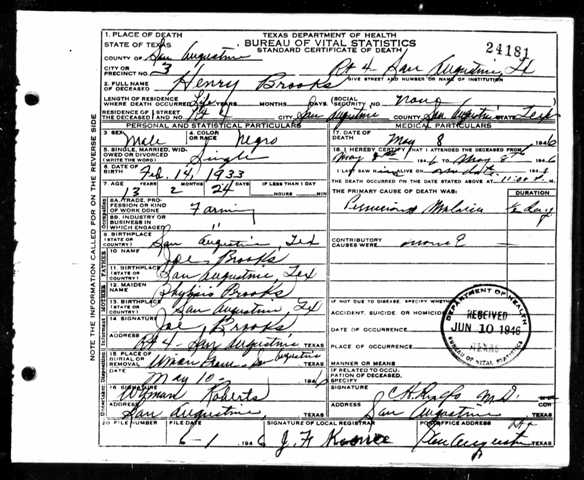 1. PLACE OF DEATH
STATE OF TEXAS
TEXAS DEPARTMENT OF HEALTH
BUREAU OF VITAL STATISTICS
STANDARD CERTIFICATE OF DEATH
24181
COUNTY OF San Augustine
CITY OR PRECINCT NO. 3 Rt 4 San Augustine, Tex
GIVE STREET AND NUMBER OR NAME OF INSTITUTION
2. FULL NAME OF DECEASED Henry Brooks
LENGTH OF RESIDENCE WHERE DEATH OCCURRED YEARS MONTHS DAYS SOCIAL SECURITY NO. none
RESIDENCE OF THE DECEASED STREET AND NO. Rt 4 CITY San Augustine COUNTY San Augustine STATE Texas
PERSONAL AND STATISTICAL PARTICULARS
3. SEX Male
4. COLOR OR RACE Negro
5. SINGLE, MARRIED, WIDOWED OR DIVORCED (WRITE THE WORD) Single
6. DATE OF BIRTH Feb. 14, 1933
7. AGE YEARS 13 MONTHS 2 DAYS 24 IF LESS THAN 1 DAY HOURS MIN
8A. TRADE, PROFESSION OR KIND OF WORK DONE Farming
8B. INDUSTRY OR BUSINESS IN WHICH ENGAGED
9. BIRTHPLACE (STATE OR COUNTRY) San Augustine, Tex
10. NAME Joe Brooks
11. BIRTHPLACE (STATE OR COUNTRY) San Augustine, Tex
12. MAIDEN NAME Brooks
13. BIRTHPLACE (STATE OR COUNTRY) San Augustine, Tx
14. SIGNATURE Joe Brooks
ADDRESS Rt 4 - San Augustine TEXAS
15. PLACE OF BURIAL OR REMOVAL Union Grove - San Augustine TEXAS
DATE May 10 - 1946
16. SIGNATURE Wyman Roberts
ADDRESS San Augustine, TEXAS
MEDICAL PARTICULARS
17. DATE OF DEATH May 8 1946
18. I HEREBY CERTIFY THAT I ATTENDED THE DECEASED FROM
May 8th 1946 TO May 8th 1946
I LAST SAW ALIVE ON 194
THE DEATH OCCURRED ON THE DATE STATED ABOVE AT
THE PRIMARY CAUSE OF DEATH WAS: DURATION
Pernicious Malaria
CONTRIBUTORY CAUSES WERE none
IF NOT DUE TO DISEASE, SPECIFY WHETHER
ACCIDENT, SUICIDE OR HOMICIDE
DATE OF OCCURRENCE
PLACE OF OCCURRENCE
MANNER OR MEANS
IF RELATED TO OCCUPATION OF DECEASED, SPECIFY
DEPARTMENT OF HEALTH
RECEIVED
JUN 10 1946
TEXAS
BUREAU OF VITAL STATISTICS
SIGNATURE M.D.
ADDRESS San Augustine TEXAS
20. FILE NUMBER FILE DATE 6-1 1946 SIGNATURE OF LOCAL REGISTRAR POST OFFICE ADDRESS San Augustine TEXAS
NOTE THE INFORMATION CALLED FOR ON THE REVERSE SIDE